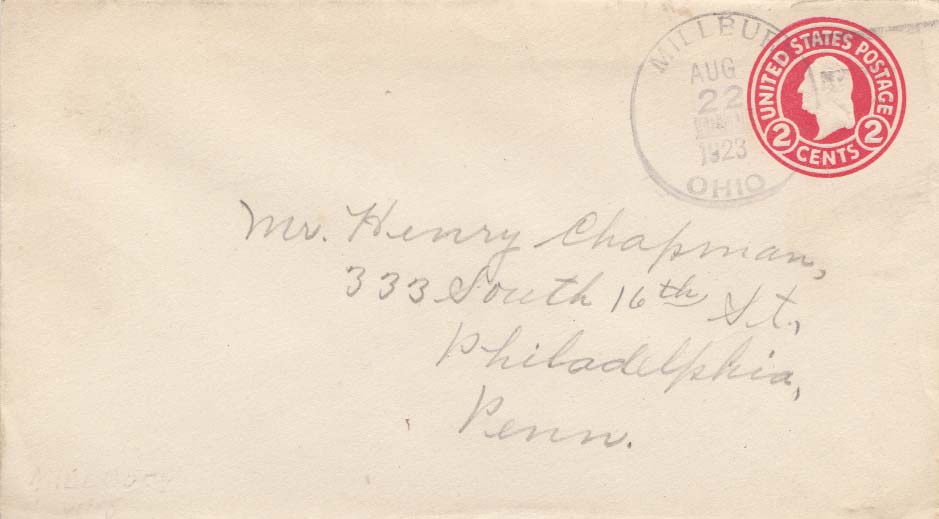 MILLBU
AUG
22
1923
OHIO
UNITED STATES POSTAGE
2 CENTS 2
Mr. Henry Chapman,
333 South 16th St.,
Philadelphia,
Penn.